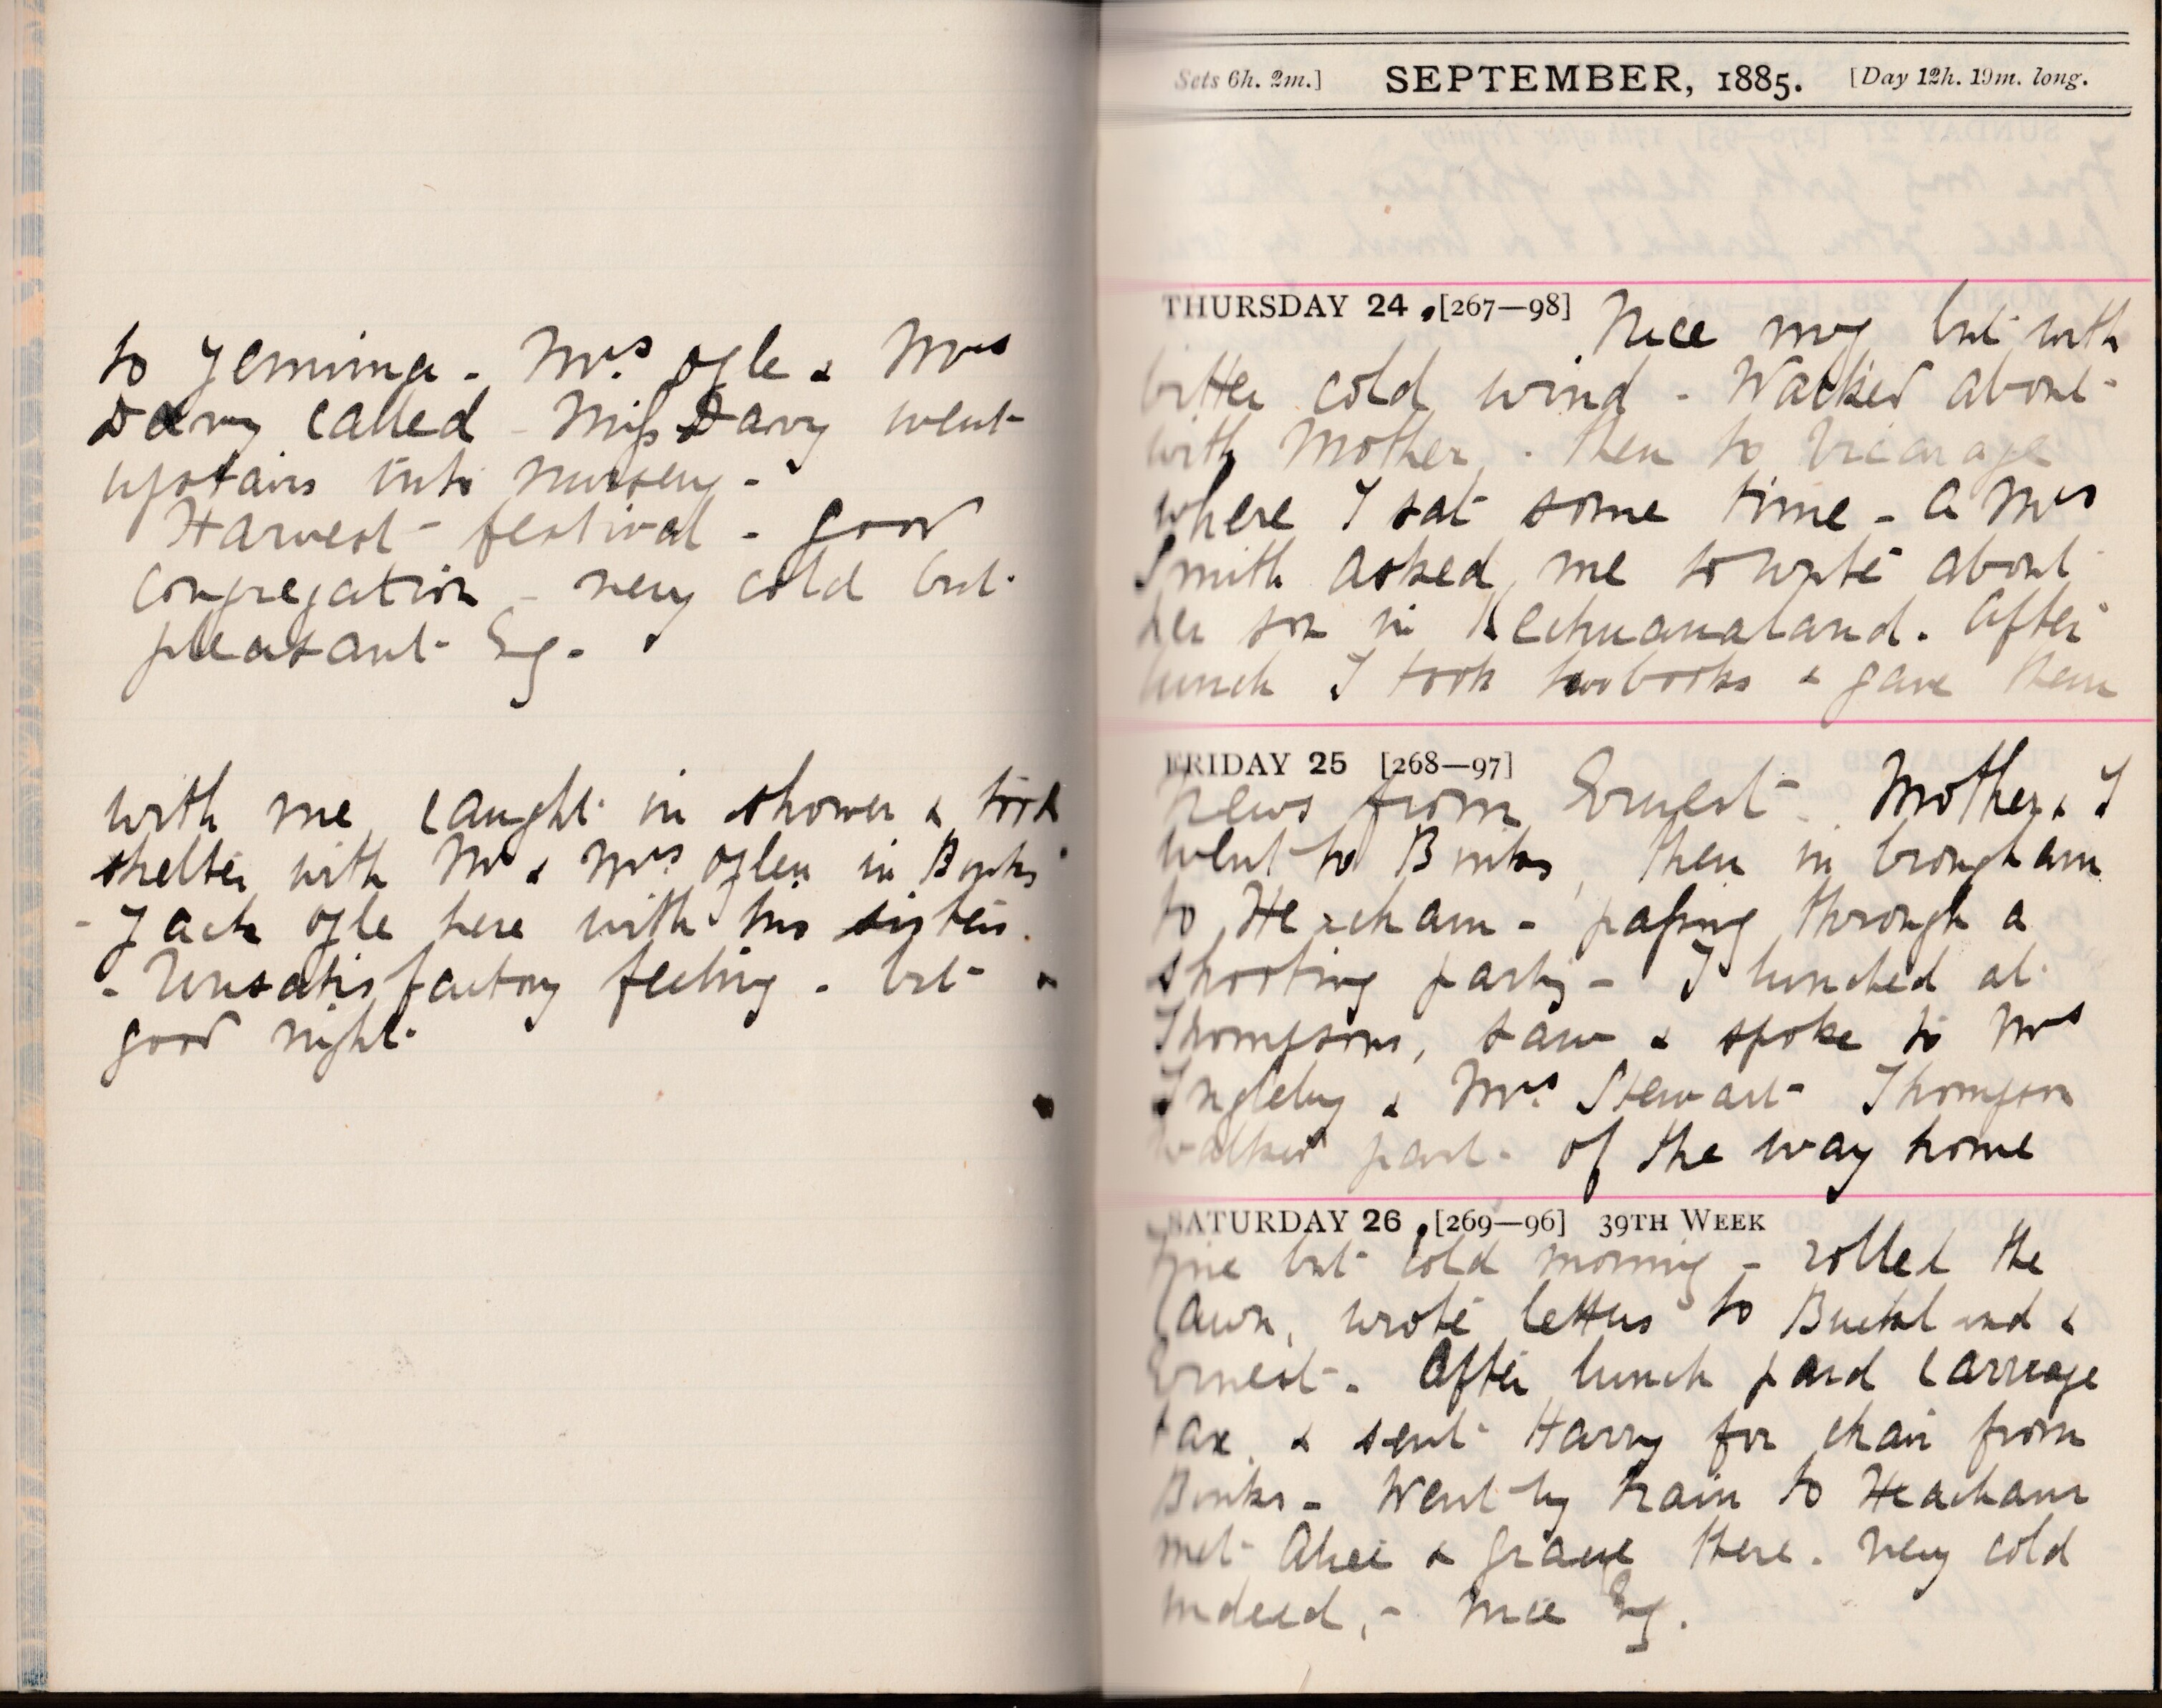 to Jemima - Mrs. Ogle & Mrs
Davy called - Miss Davy went
upstairs into nursery -
Harvest festival - good
congregation - very cold but
pleasant Eg -
with me, caught in shower & took
shelter with Mr & Mrs Oglen in Binks
- Jack Ogle here with his sisters.
- Unsatisfactory feeling - but
good night
Sets 6h. 2m.] SEPTEMBER, 1885. [Day 12h. 19m. long.
THURSDAY 24 [267—98] Nice mg but with
bitter cold wind - Walked about
with Mother, - then to Vicarage
where I sat some time - a Mrs
Smith asked me to write about
her son in Bechuanaland. After
lunch I took two books & gave them
FRIDAY 25 [268—97]
News from Ernest - Mother & I
went to Binks, then in brougham
to Heacham - passing through a
shooting party - I lunched at
Thompsons, saw & spoke to Mrs
Ingleby & Mrs. Stewart Thompson
walked part of the way home
SATURDAY 26 [269—96] 39TH WEEK
Fine but cold morning - rolled the
lawn, wrote letters to Buckland &
Ernest - After lunch paid carriage
tax, & sent Harry for chair from
Binks - Went by train to Heacham
met Alice & Grace there. very cold
indeed, - nice Eg.